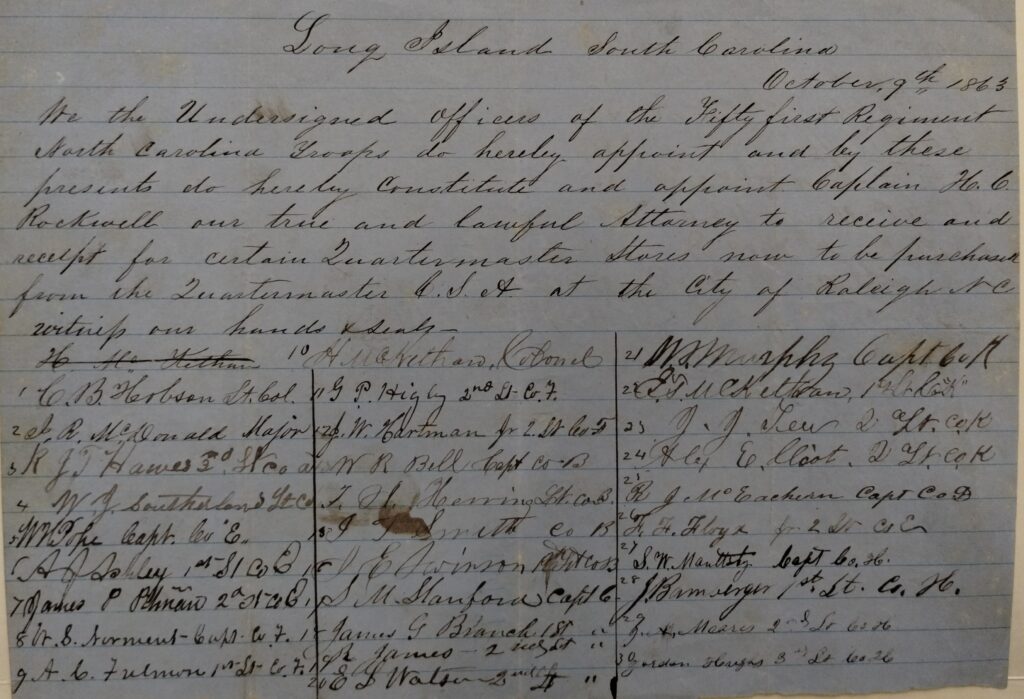 Long Island South Carolina
October, 9th 1863
We the Undersigned officers of the Fifty first Regiment
North Carolina Troops do hereby appoint and by these
presents do hereby constitute and appoint Captain H. C.
Rockwell our true and lawful Attorney to receive and
receipt for certain Quartermaster Stores now to be purchased
from the Quartermaster C. S. A. at the City of Raleigh N C
witness our hands & seals
1 C. B. Hobson Lt. Col.
2 J. R. McDonald Major
3 R J T Hawes 3d Lt Co
4 W. J. Southerland Lt Co
5 Pope Capt. Co E.
6 A J Ashley 1st Lt Co E
7 James P 2d Lt Co E
8 W. S. Norment Capt. Co. F.
9 A. C. Fulmore 1st Lt Co. F.
10 H McKethan, Colonel
11 G. P. Higley 2nd Lt Co. F.
12 J. W. Hartman Jr 2 Lt Co F
W R Bell Capt Co B
Herring Lt. Co B.
Smith Co B
J E Swinson Lt Co B
S. M. Stanford Capt
James G Branch 1st "
James 2nd Lt "
20 E T Watson 2nd Lt "
21 W. Murphy Capt Co K
22 McKethan, 1st Lt
23 J. J. Tew 2 Lt. Co K
24 Alex Elliot. 2 Lt. Co K
25 R J McEachern Capt Co D
26 F. F. Floyd Jr 2 Lt Co E
27 S. W. Maultsby Capt Co. H.
28 J. 1st. Lt. Co. H.
29 2nd Lt Co H
30 Gordon 3rd Lt Co H